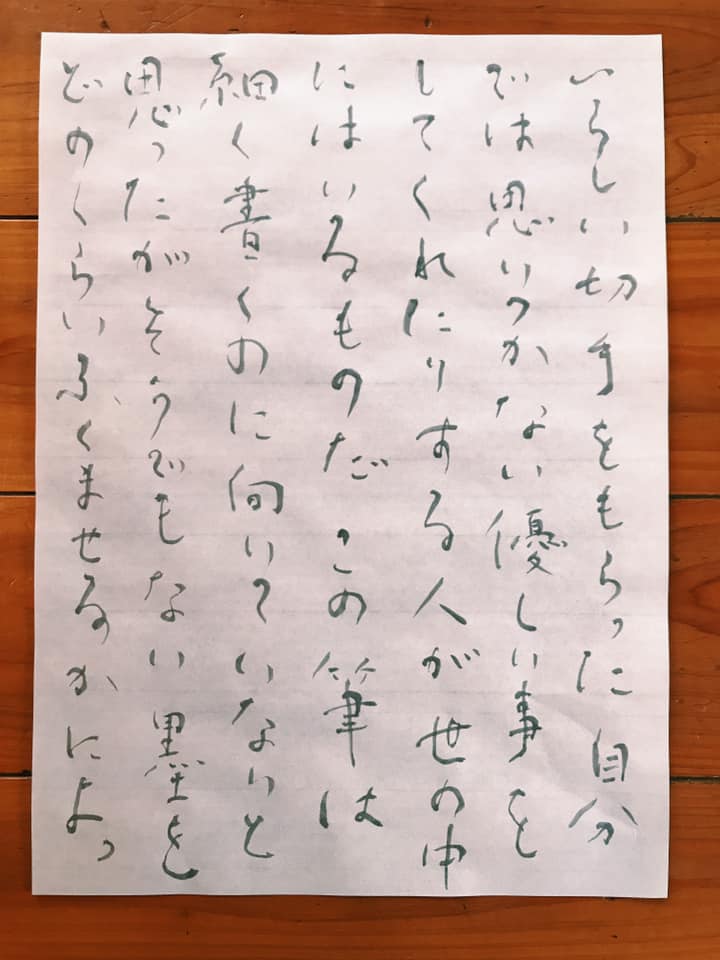 いらしい切手をもらった自分
では思いつかない優しい事を
してくれたりする人が世の中
にはいるものだこの筆は
細く書くのに向いていないと
思ったがそうでもない 墨を
どのくらいふくませるかによっ